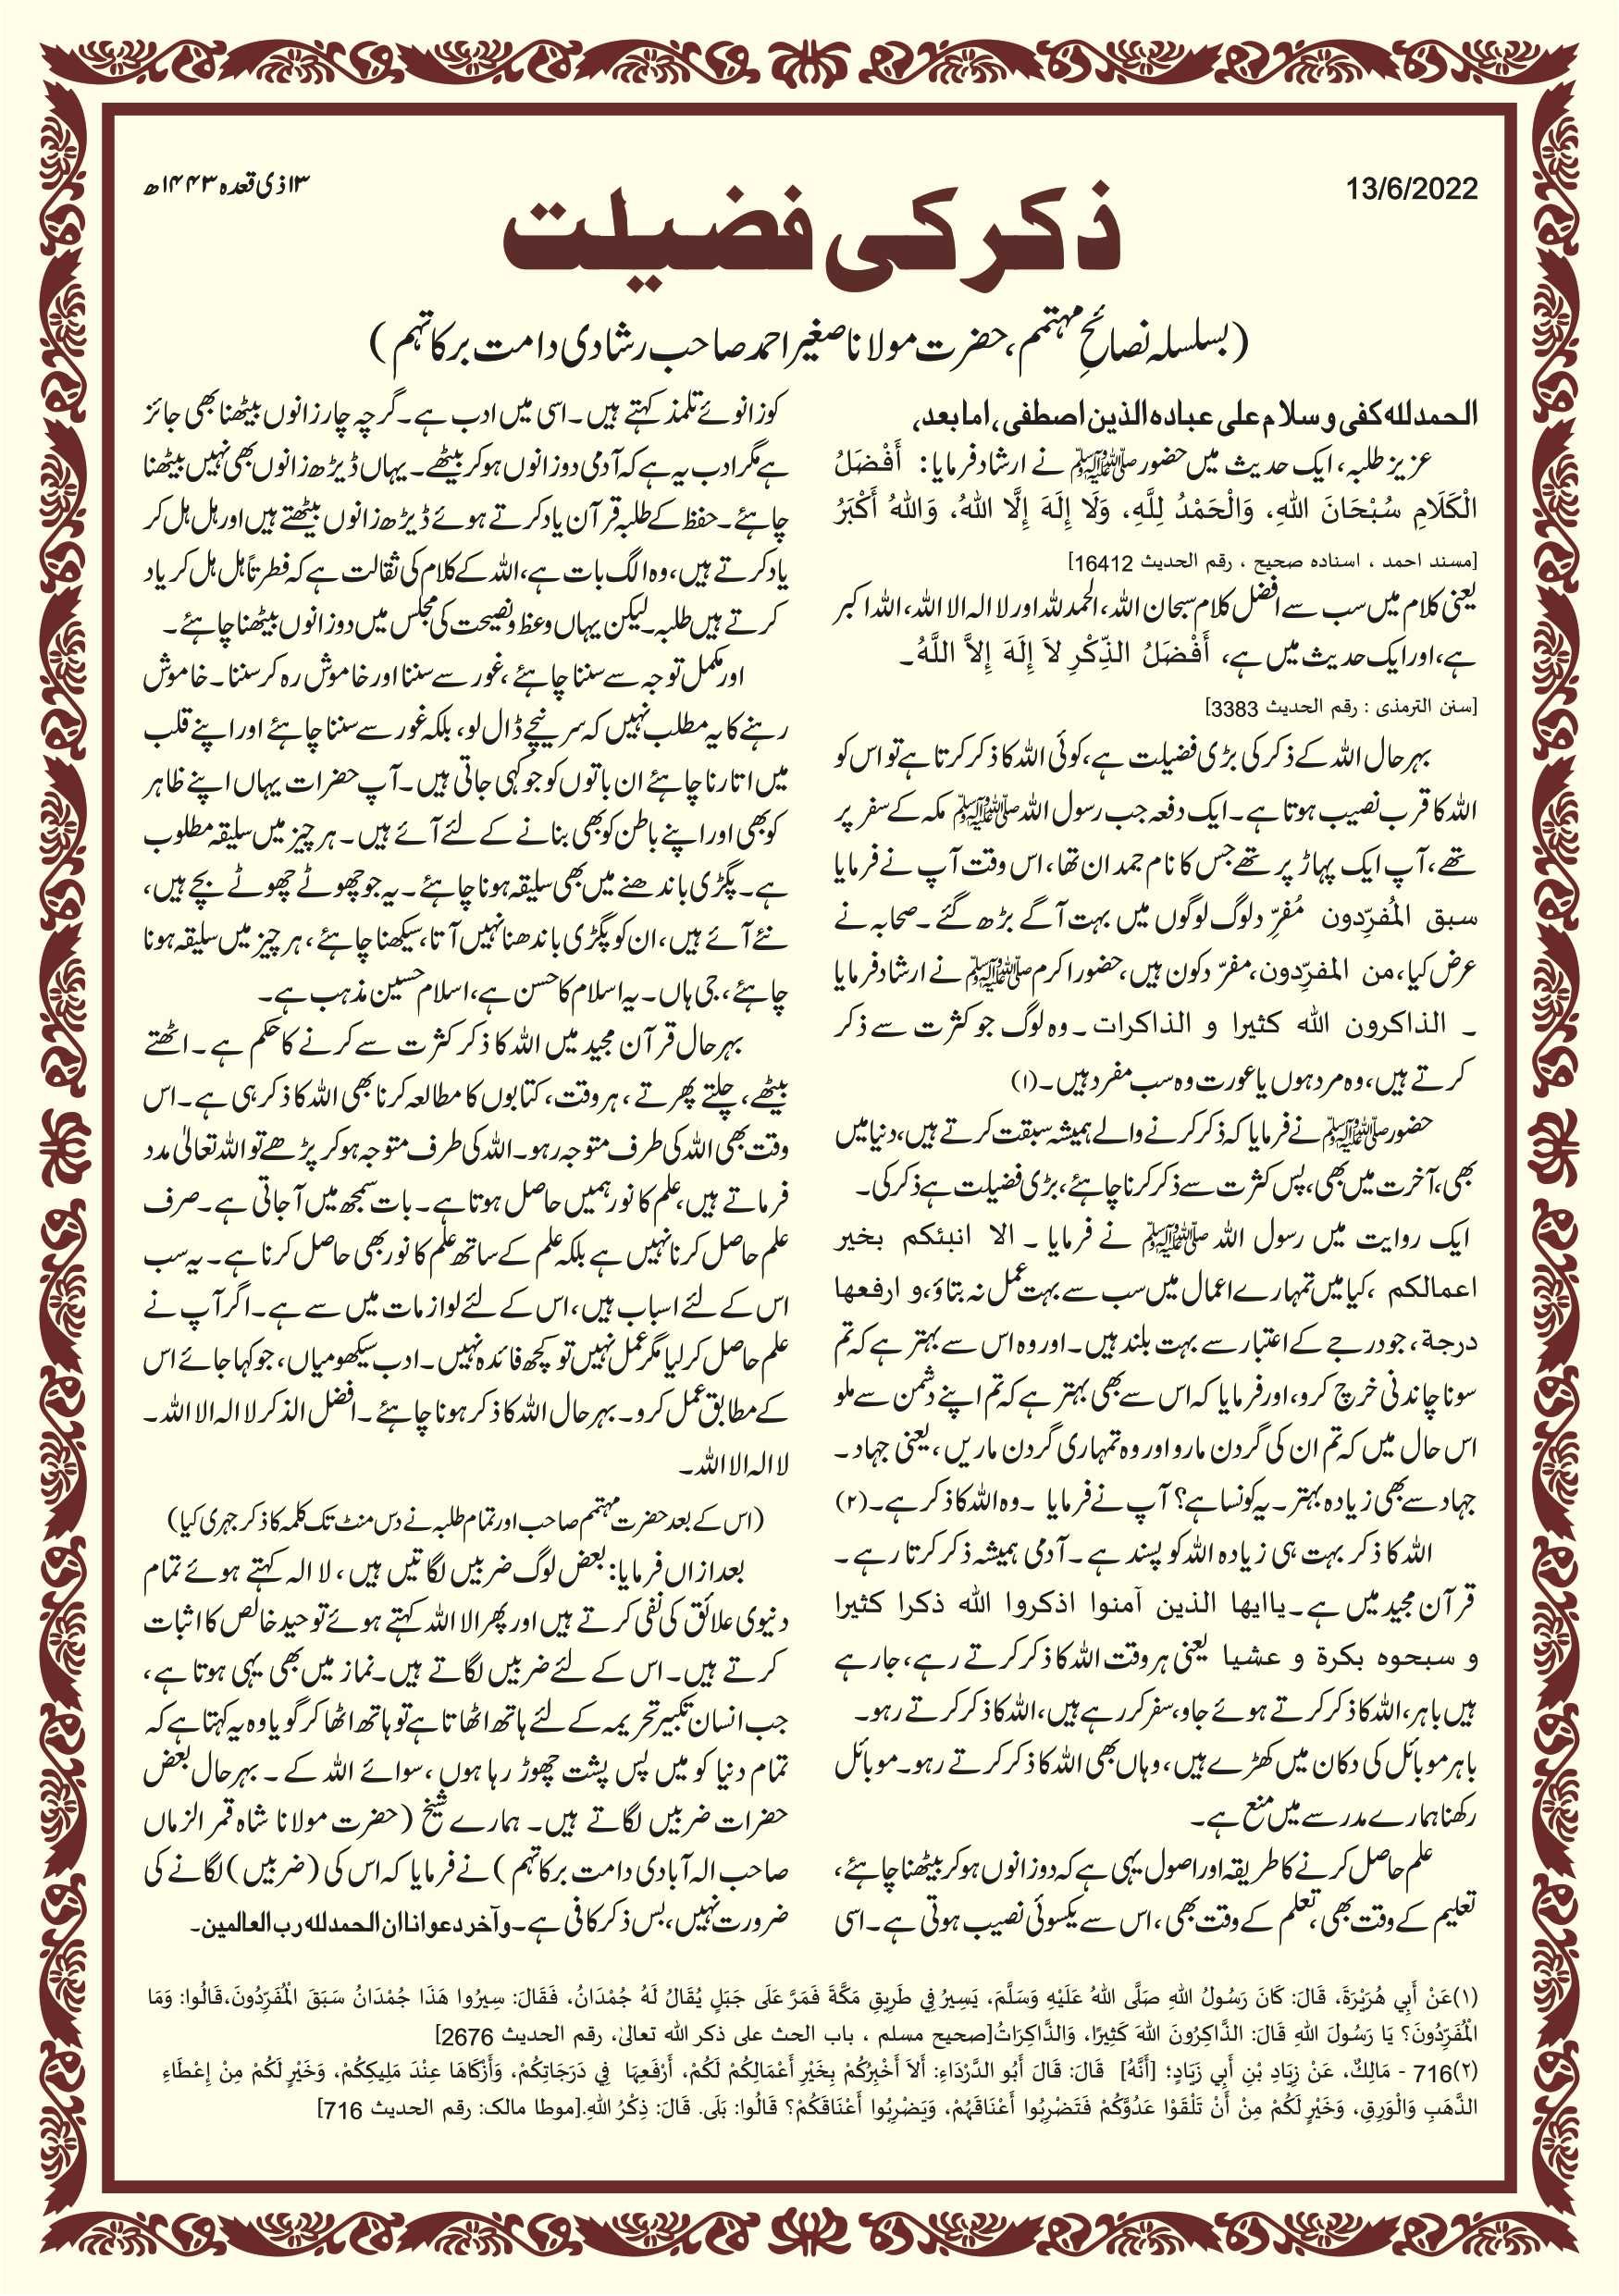 13/6/2022
۱۳ ذی قعدہ ۱۴۴۳ھ
ذکر کی فضیلت
(بسلسلہ نصائحِ مہتمم، حضرت مولانا صغیر احمد صاحب رشادی دامت برکاتہم)
الحمدللہ کفی وسلام علی عبادہ الذین اصطفی، اما بعد،
عزیز طلبہ، ایک حدیث میں حضور ﷺ نے ارشاد فرمایا: أَفْضَلُ
الْكَلَامِ سُبْحَانَ اللهِ، وَالْحَمْدُ لِلَّهِ، وَلَا إِلَهَ إِلَّا اللهُ، وَاللهُ أَكْبَرُ
[مسند احمد ، اسنادہ صحیح ، رقم الحدیث 16412]
یعنی کلام میں سب سے افضل کلام سبحان اللہ، الحمدللہ اور لا الہ الا اللہ، اللہ اکبر
ہے، اور ایک حدیث میں ہے، أَفْضَلُ الذِّكْرِ لاَ إِلَهَ إِلاَّ اللَّهُ۔
[سنن الترمذی : رقم الحدیث 3383]
بہرحال اللہ کے ذکر کی بڑی فضیلت ہے، کوئی اللہ کا ذکر کرتا ہے تو اس کو
اللہ کا قرب نصیب ہوتا ہے۔ ایک دفعہ جب رسول اللہ ﷺ مکہ کے سفر پر
تھے، آپ ایک پہاڑ پر تھے جس کا نام جمدان تھا، اس وقت آپ نے فرمایا
سبق المُفرِّدون مُفرِّد لوگ لوگوں میں بہت آگے بڑھ گئے۔ صحابہ نے
عرض کیا، من المفرِّدون، مفرّد کون ہیں، حضور اکرم ﷺ نے ارشاد فرمایا
۔ الذاکرون اللہ کثیرا و الذاکرات۔ وہ لوگ جو کثرت سے ذکر
کرتے ہیں، وہ مرد ہوں یا عورت وہ سب مفرد ہیں۔(۱)
حضور ﷺ نے فرمایا کہ ذکر کرنے والے ہمیشہ سبقت کرتے ہیں، دنیا میں
بھی، آخرت میں بھی، پس کثرت سے ذکر کرنا چاہئے، بڑی فضیلت ہے ذکر کی۔
ایک روایت میں رسول اللہ ﷺ نے فرمایا ۔ الا انبئکم بخیر
اعمالکم ، کیا میں تمہارے اعمال میں سب سے بہت عمل نہ بتاؤ، و ارفعها
درجة، جو درجے کے اعتبار سے بہت بلند ہیں۔ اور وہ اس سے بہتر ہے کہ تم
سونا چاندنی خرچ کرو، اور فرمایا کہ اس سے بھی بہتر ہے کہ تم اپنے دشمن سے ملو
اس حال میں کہ تم ان کی گردن مارو اور وہ تمہاری گردن ماریں، یعنی جہاد۔
جہاد سے بھی زیادہ بہتر۔ یہ کونسا ہے؟ آپ نے فرمایا ۔ وہ اللہ کا ذکر ہے۔(۲)
اللہ کا ذکر بہت ہی زیادہ اللہ کو پسند ہے۔ آدمی ہمیشہ ذکر کرتا رہے۔
قرآن مجید میں ہے۔ یاایها الذین آمنوا اذکروا اللہ ذکرا کثیرا
و سبحوه بکرة و عشیا یعنی ہر وقت اللہ کا ذکر کرتے رہے، جارہے
ہیں باہر، اللہ کا ذکر کرتے ہوئے جاو، سفر کررہے ہیں، اللہ کا ذکر کرتے رہو۔
باہر موبائل کی دکان میں کھڑے ہیں، وہاں بھی اللہ کا ذکر کرتے رہو۔ موبائل
رکھنا ہمارے مدرسے میں منع ہے۔
علم حاصل کرنے کا طریقہ اور اصول یہی ہے کہ دوزانوں ہوکر بیٹھنا چاہئے،
تعلیم کے وقت بھی، تعلم کے وقت بھی، اس سے یکسوئی نصیب ہوتی ہے۔ اسی
کو زانوئے تلمذ کہتے ہیں۔ اسی میں ادب ہے۔ گرچہ چار زانوں بیٹھنا بھی جائز
ہے مگر ادب یہ ہے کہ آدمی دوزانوں ہوکر بیٹھے۔ یہاں ڈیڑھ زانوں بھی نہیں بیٹھنا
چاہئے۔ حفظ کے طلبہ قرآن یاد کرتے ہوئے ڈیڑھ زانوں بیٹھتے ہیں اور ہل ہل کر
یاد کرتے ہیں، وہ الگ بات ہے، اللہ کے کلام کی ثقالت ہے کہ فطرتاً ہل ہل کر یاد
کرتے ہیں طلبہ۔ لیکن یہاں وعظ و نصیحت کی مجلس میں دوزانوں بیٹھنا چاہئے۔
اور مکمل توجہ سے سننا چاہئے، غور سے سننا اور خاموش رہ کر سننا۔ خاموش
رہنے کا یہ مطلب نہیں کہ سر نیچے ڈال لو، بلکہ غور سے سننا چاہئے اور اپنے قلب
میں اتارنا چاہئے ان باتوں کو جو کہی جاتی ہیں۔ آپ حضرات یہاں اپنے ظاہر
کو بھی اور اپنے باطن کو بھی بنانے کے لئے آئے ہیں۔ ہر چیز میں سلیقہ مطلوب
ہے۔ پگڑی باندھنے میں بھی سلیقہ ہونا چاہئے۔ یہ جو چھوٹے چھوٹے بچے ہیں،
نئے آئے ہیں، ان کو پگڑی باندھنا نہیں آتا، سیکھنا چاہئے، ہر چیز میں سلیقہ ہونا
چاہئے، جی ہاں۔ یہ اسلام کا حسن ہے، اسلام حسین مذہب ہے۔
بہرحال قرآن مجید میں اللہ کا ذکر کثرت سے کرنے کا حکم ہے۔ اٹھتے
بیٹھے، چلتے پھرتے، ہر وقت، کتابوں کا مطالعہ کرنا بھی اللہ کا ذکر ہی ہے۔ اس
وقت بھی اللہ کی طرف متوجہ رہو۔ اللہ کی طرف متوجہ ہوکر پڑھے تو اللہ تعالیٰ مدد
فرماتے ہیں، علم کا نور ہمیں حاصل ہوتا ہے۔ بات سمجھ میں آجاتی ہے۔ صرف
علم حاصل کرنا نہیں ہے بلکہ علم کے ساتھ علم کا نور بھی حاصل کرنا ہے۔ یہ سب
اس کے لئے اسباب ہیں، اس کے لئے لوازمات میں سے ہے۔ اگر آپ نے
علم حاصل کرلیا مگر عمل نہیں تو کچھ فائدہ نہیں۔ ادب سیکھو میاں، جو کہا جائے اس
کے مطابق عمل کرو۔ بہرحال اللہ کا ذکر ہونا چاہئے۔ افضل الذکر لا الہ الا اللہ۔
لا الہ الا اللہ۔
(اس کے بعد حضرت مہتمم صاحب اور تمام طلبہ نے دس منٹ تک کلمہ کا ذکر جہری کیا)
بعد ازاں فرمایا: بعض لوگ ضربیں لگاتیں ہیں، لا الہ کہتے ہوئے تمام
دنیوی علائق کی نفی کرتے ہیں اور پھر الا اللہ کہتے ہوئے توحید خالص کا اثبات
کرتے ہیں۔ اس کے لئے ضربیں لگاتے ہیں۔ نماز میں بھی یہی ہوتا ہے،
جب انسان تکبیر تحریمہ کے لئے ہاتھ اٹھاتا ہے تو ہاتھ اٹھا کر گویا وہ یہ کہتا ہے کہ
تمام دنیا کو میں پس پشت چھوڑ رہا ہوں، سوائے اللہ کے ۔ بہرحال بعض
حضرات ضربیں لگاتے ہیں۔ ہمارے شیخ (حضرت مولانا شاہ قمر الزماں
صاحب الہ آبادی دامت برکاتہم) نے فرمایا کہ اس کی (ضربیں) لگانے کی
ضرورت نہیں، بس ذکر کافی ہے۔ وآخر دعوانا ان الحمدللہ رب العالمین۔
(۱)عَنْ أَبِي هُرَيْرَةَ، قَالَ: كَانَ رَسُولُ اللهِ صَلَّى اللهُ عَلَيْهِ وَسَلَّمَ، يَسِيرُ فِي طَرِيقِ مَكَّةَ فَمَرَّ عَلَى جَبَلٍ يُقَالُ لَهُ جُمْدَانُ، فَقَالَ: سِيرُوا هَذَا جُمْدَانُ سَبَقَ الْمُفَرِّدُونَ،قَالُوا: وَمَا
الْمُفَرِّدُونَ؟ يَا رَسُولَ اللهِ قَالَ: الذَّاكِرُونَ اللهَ كَثِيرًا، وَالذَّاكِرَاتُ[صحیح مسلم ، باب الحث علی ذکر اللہ تعالیٰ، رقم الحدیث 2676]
(۲)716 - مَالِكٌ، عَنْ زِيَادِ بْنِ أَبِي زِيَادٍ؛ [أَنَّهُ] قَالَ: قَالَ أَبُو الدَّرْدَاءِ: أَلاَ أُخْبِرُكُمْ بِخَيْرِ أَعْمَالِكُمْ لَكُمْ، أَرْفَعِهَا فِي دَرَجَاتِكُمْ، وَأَزْكَاهَا عِنْدَ مَلِيكِكُمْ، وَخَيْرٍ لَكُمْ مِنْ إِعْطَاءِ
الذَّهَبِ وَالْوَرِقِ، وَخَيْرٍ لَكُمْ مِنْ أَنْ تَلْقَوْا عَدُوَّكُمْ فَتَضْرِبُوا أَعْنَاقَهُمْ، وَيَضْرِبُوا أَعْنَاقَكُمْ؟ قَالُوا: بَلَى. قَالَ: ذِكْرُ اللهِ.[موطا مالک: رقم الحدیث 716]